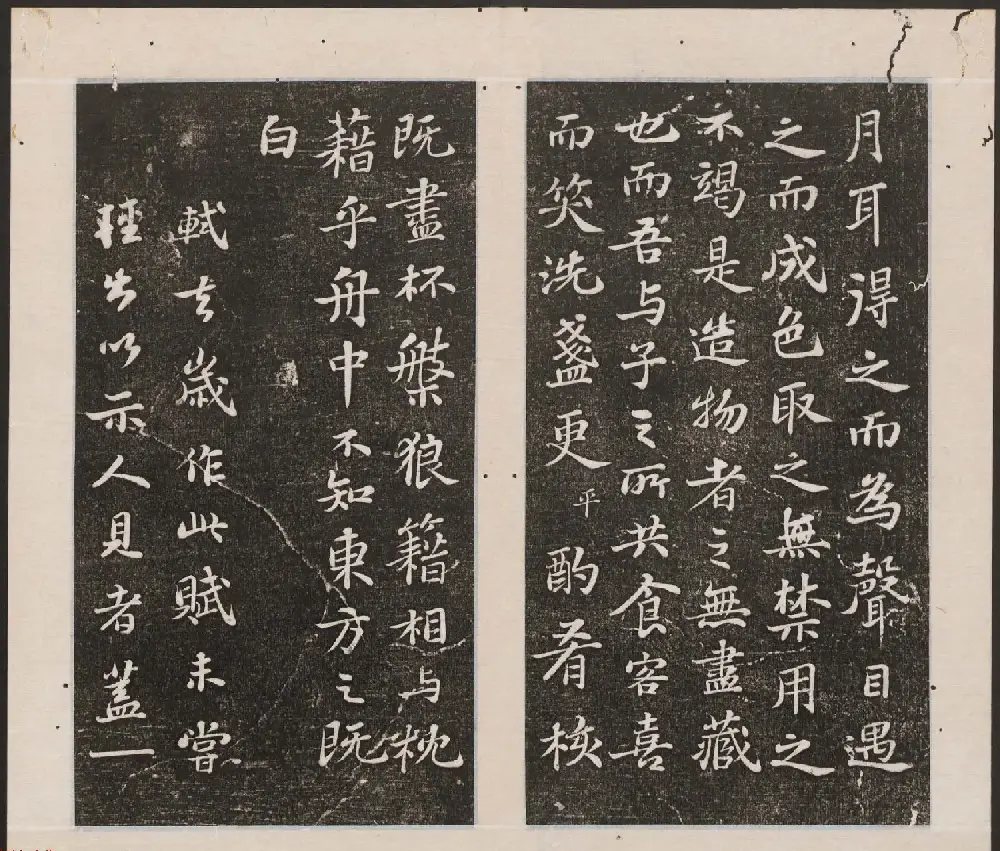 月耳得之而為聲目遇
之而成色取之無禁用之
不竭是造物者之無盡藏
也而吾与子之所共食客喜
而笑洗盞更平酌肴核
既盡杯槃狼籍相与枕
藉乎舟中不知東方之既
白
軾去歲作此賦未嘗
輕出以示人見者蓋一